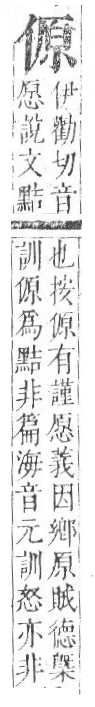 傆
伊勸切音
愿說文黠
也按傆有謹愿義因鄉原賊德槩
訓傆爲黠非篇海音元訓怒亦非